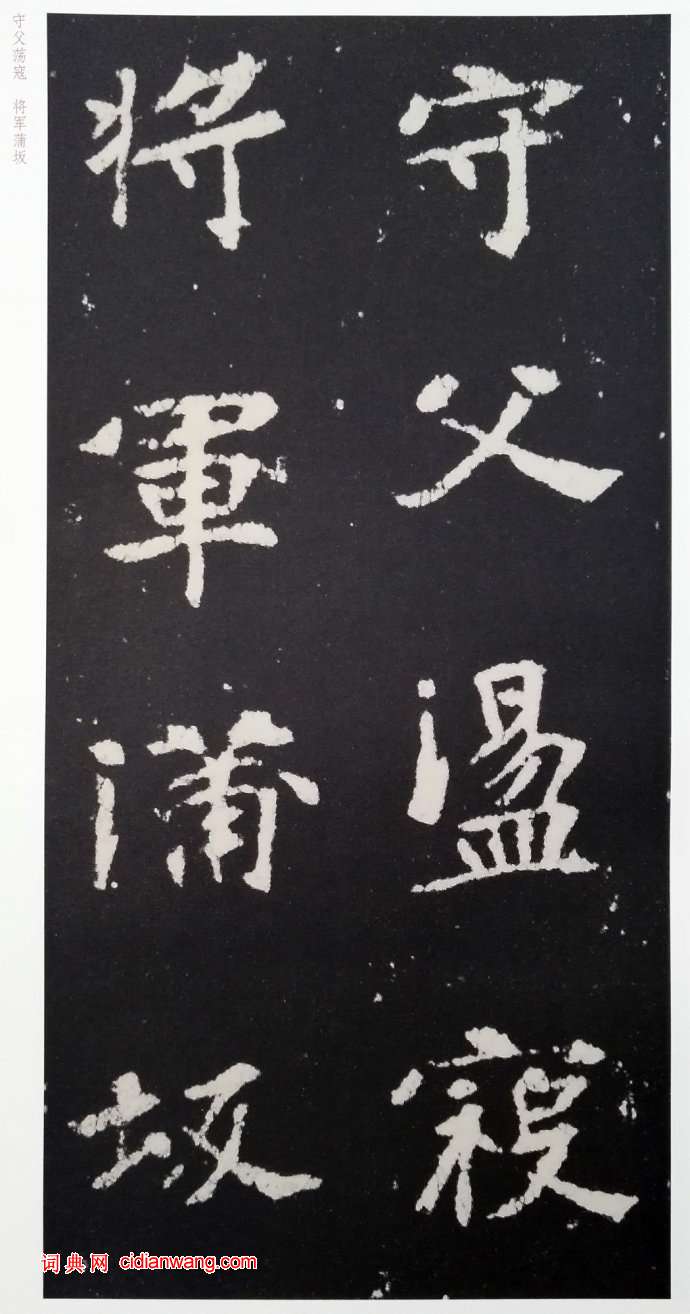 守父盪寇
將軍蒲坂
守父荡寇 将军蒲坂
词典网 cidianwang.com